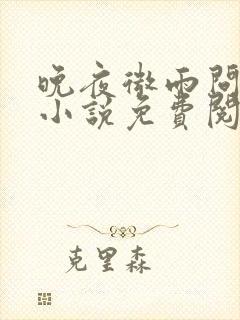 晚夜微雨問
小說免費閱
克里森